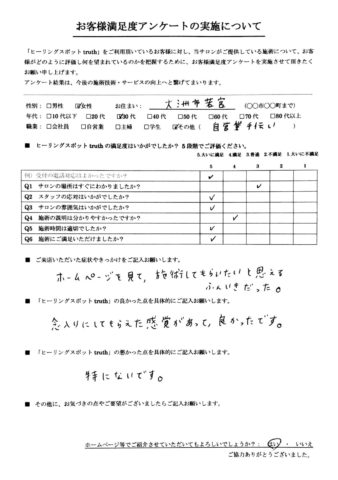 お客様満足度アンケートの実施について
「ヒーリングスポット truth」をご利用頂いているお客様に対し、当サロンがご提供している施術について、お客
様がどのように評価し何を望まれているのかを把握するために、お客様満足度アンケートを実施させて頂きたく
お願い申し上げます。
アンケート結果は、今後の施術技術・サービスの向上へと繋げてまいります。
性別: □男性 ☑女性 お住まい: 大洲市若宮 (○○市○○町まで)
年代: □10 代以下 □20 代 ☑30 代 □40 代 □50 代 □60 代 □70 代 □80 代以上
職業: □会社員 □自営業 □主婦 □学生 ☑その他( 自営業手伝い )
■ ヒーリングスポット truth の満足度はいかがでしたか? 5 段階でご評価ください。
5.大いに満足 4.満足 3.普通 2.不満足 1.大いに不満足
5 4 3 2 1
例)受付の電話対応はよかったですか? ✓
Q1 サロンの場所はすぐにわかりましたか? ✓
Q2 スタッフの応対はいかがでしたか? ✓
Q3 サロンの雰囲気はいかがでしたか? ✓
Q4 施術の説明は分かりやすかったですか? ✓
Q5 施術時間は適切でしたか? ✓
Q6 施術にご満足いただけましたか? ✓
■ ご来店いただいた症状やきっかけをご記入お願いします。
ホームページを見て、施術してもらいたいと思える
ふんいきだった。
■ 「ヒーリングスポット truth」の良かった点を具体的にご記入お願いします。
念入りにしてもらえた感覚があって、良かったです。
■ 「ヒーリングスポット truth」の悪かった点を具体的にご記入お願いします。
特にないです。
■ その他に、お気づきの点やご要望がございましたらご記入お願いします。
ホームページ等でご紹介させていただいてもよろしいでしょうか?: はい ・ いいえ
ご協力ありがとうございました。